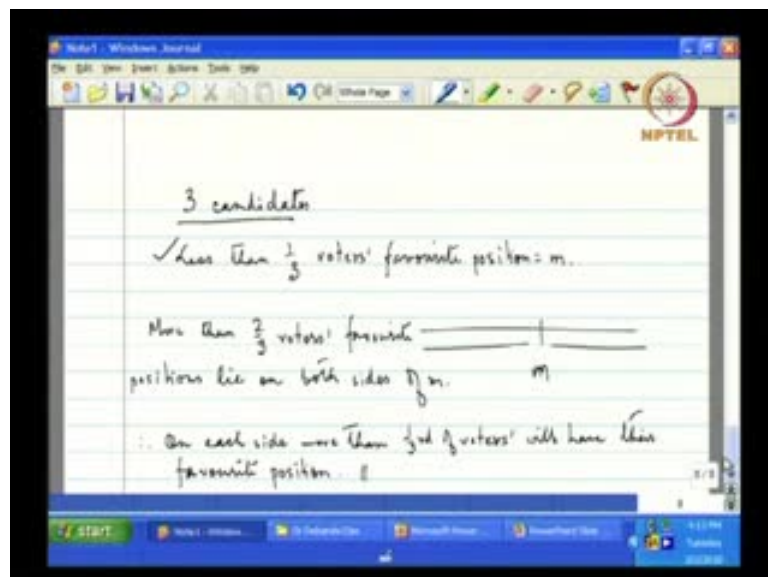 Note1 - Windows Journal
File Edit View Insert Actions Tools Help
Whole Page
NPTEL
3 candidates
✓ Less than 1/3 voters' favourite position = m.
More than 2/3 voters' favourite
positions lie on both sides of m.
m
∴ On each side more than 1/3rd of voters' will have their
favourite position.
start
Note1 - Windows...
Microsoft Power...
PowerPoint Slide...
Tuesday